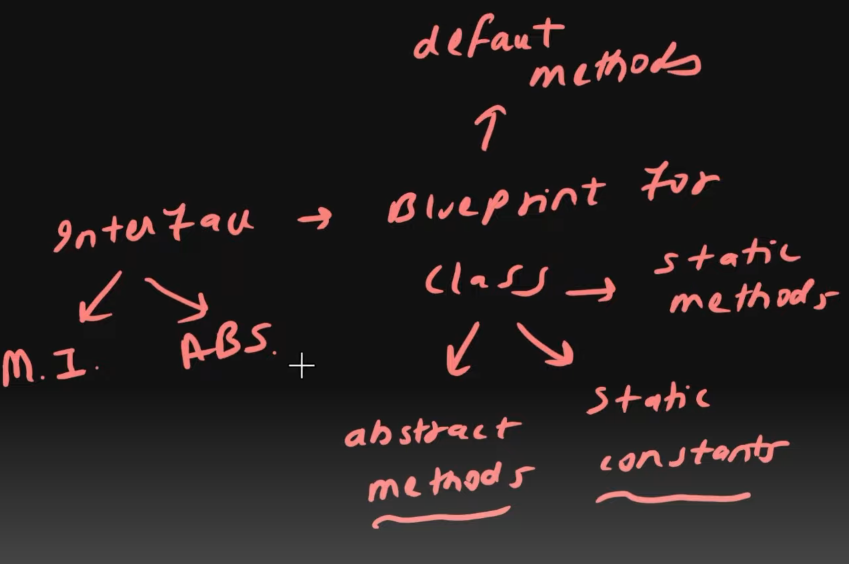 defaut
methods
Interface → Blueprint for
class → static
methods
M.I. ABS.
abstract
methods
static
constants